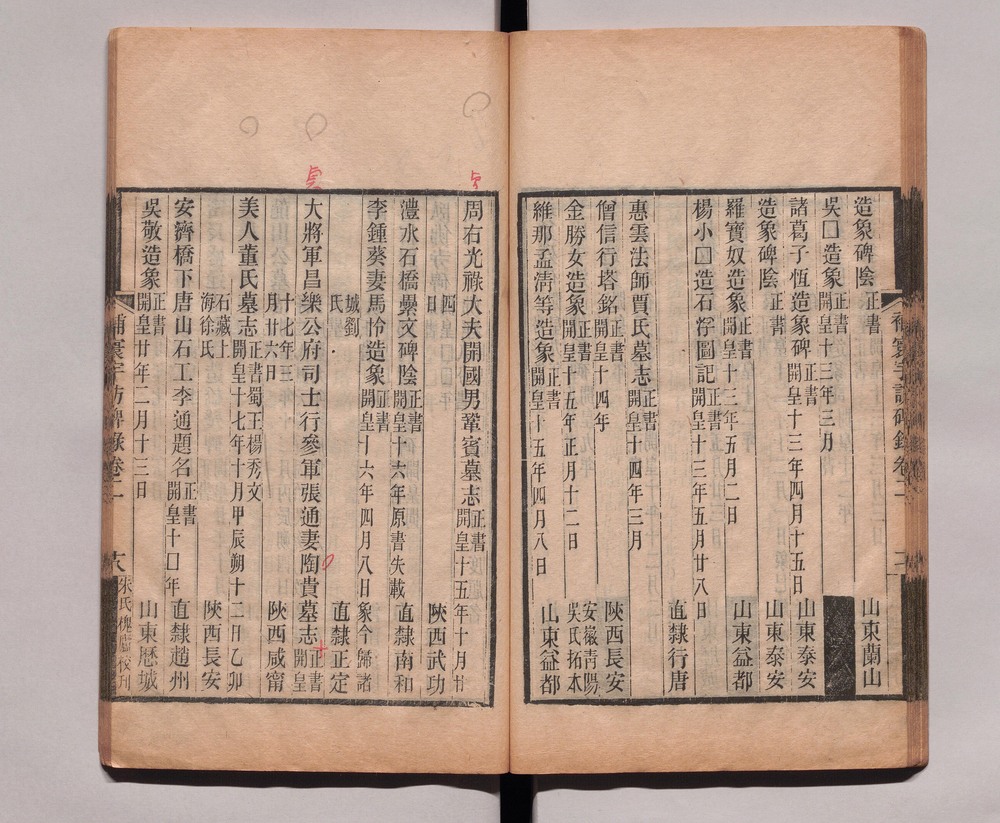 造象碑陰 正書 山東蘭山
吳囗造象 正書 開皇十三年三月
諸葛子恆造象碑 正書 開皇十三年四月十五日 山東泰安
造象碑陰 正書 山東泰安
羅寶奴造象 正書 開皇十三年五月二日 山東益都
楊小囗造石浮圖記 正書 開皇十三年五月廿八日 直隸行唐
惠雲法師賈氏墓志 正書 開皇十四年三月
僧信行塔銘 正書 開皇十四年 陝西長安
金勝女造象 正書 開皇十五年正月十二日 安徽靑陽吳氏拓本
維那孟淸等造象 正書 開皇十五年四月八日 山東益都
補寰宇訪碑錄卷二
周右光祿大夫開國男鞏賓墓志 正書 開皇十五年十月廿四日 陝西武功
澧水石橋纍文碑陰 正書 開皇十六年原書失載 直隸南和
李鍾葵妻馬怜造象 正書 開皇十六年四月八日象今歸諸城劉氏 直隸正定
大將軍昌樂公府司士行參軍張通妻陶貴墓志 正書 開皇十七年三月廿六日 陝西咸甯
美人董氏墓志 正書蜀王楊秀文 開皇十七年十月甲辰朔十二日乙卯石藏上海徐氏 陝西長安
安濟橋下唐山石工李通題名 正書 開皇十囗年 直隸趙州
吳敬造象 正書 開皇廿年二月十三日 山東歷城
補寰宇訪碑錄卷二 朱氏槐廬校刊